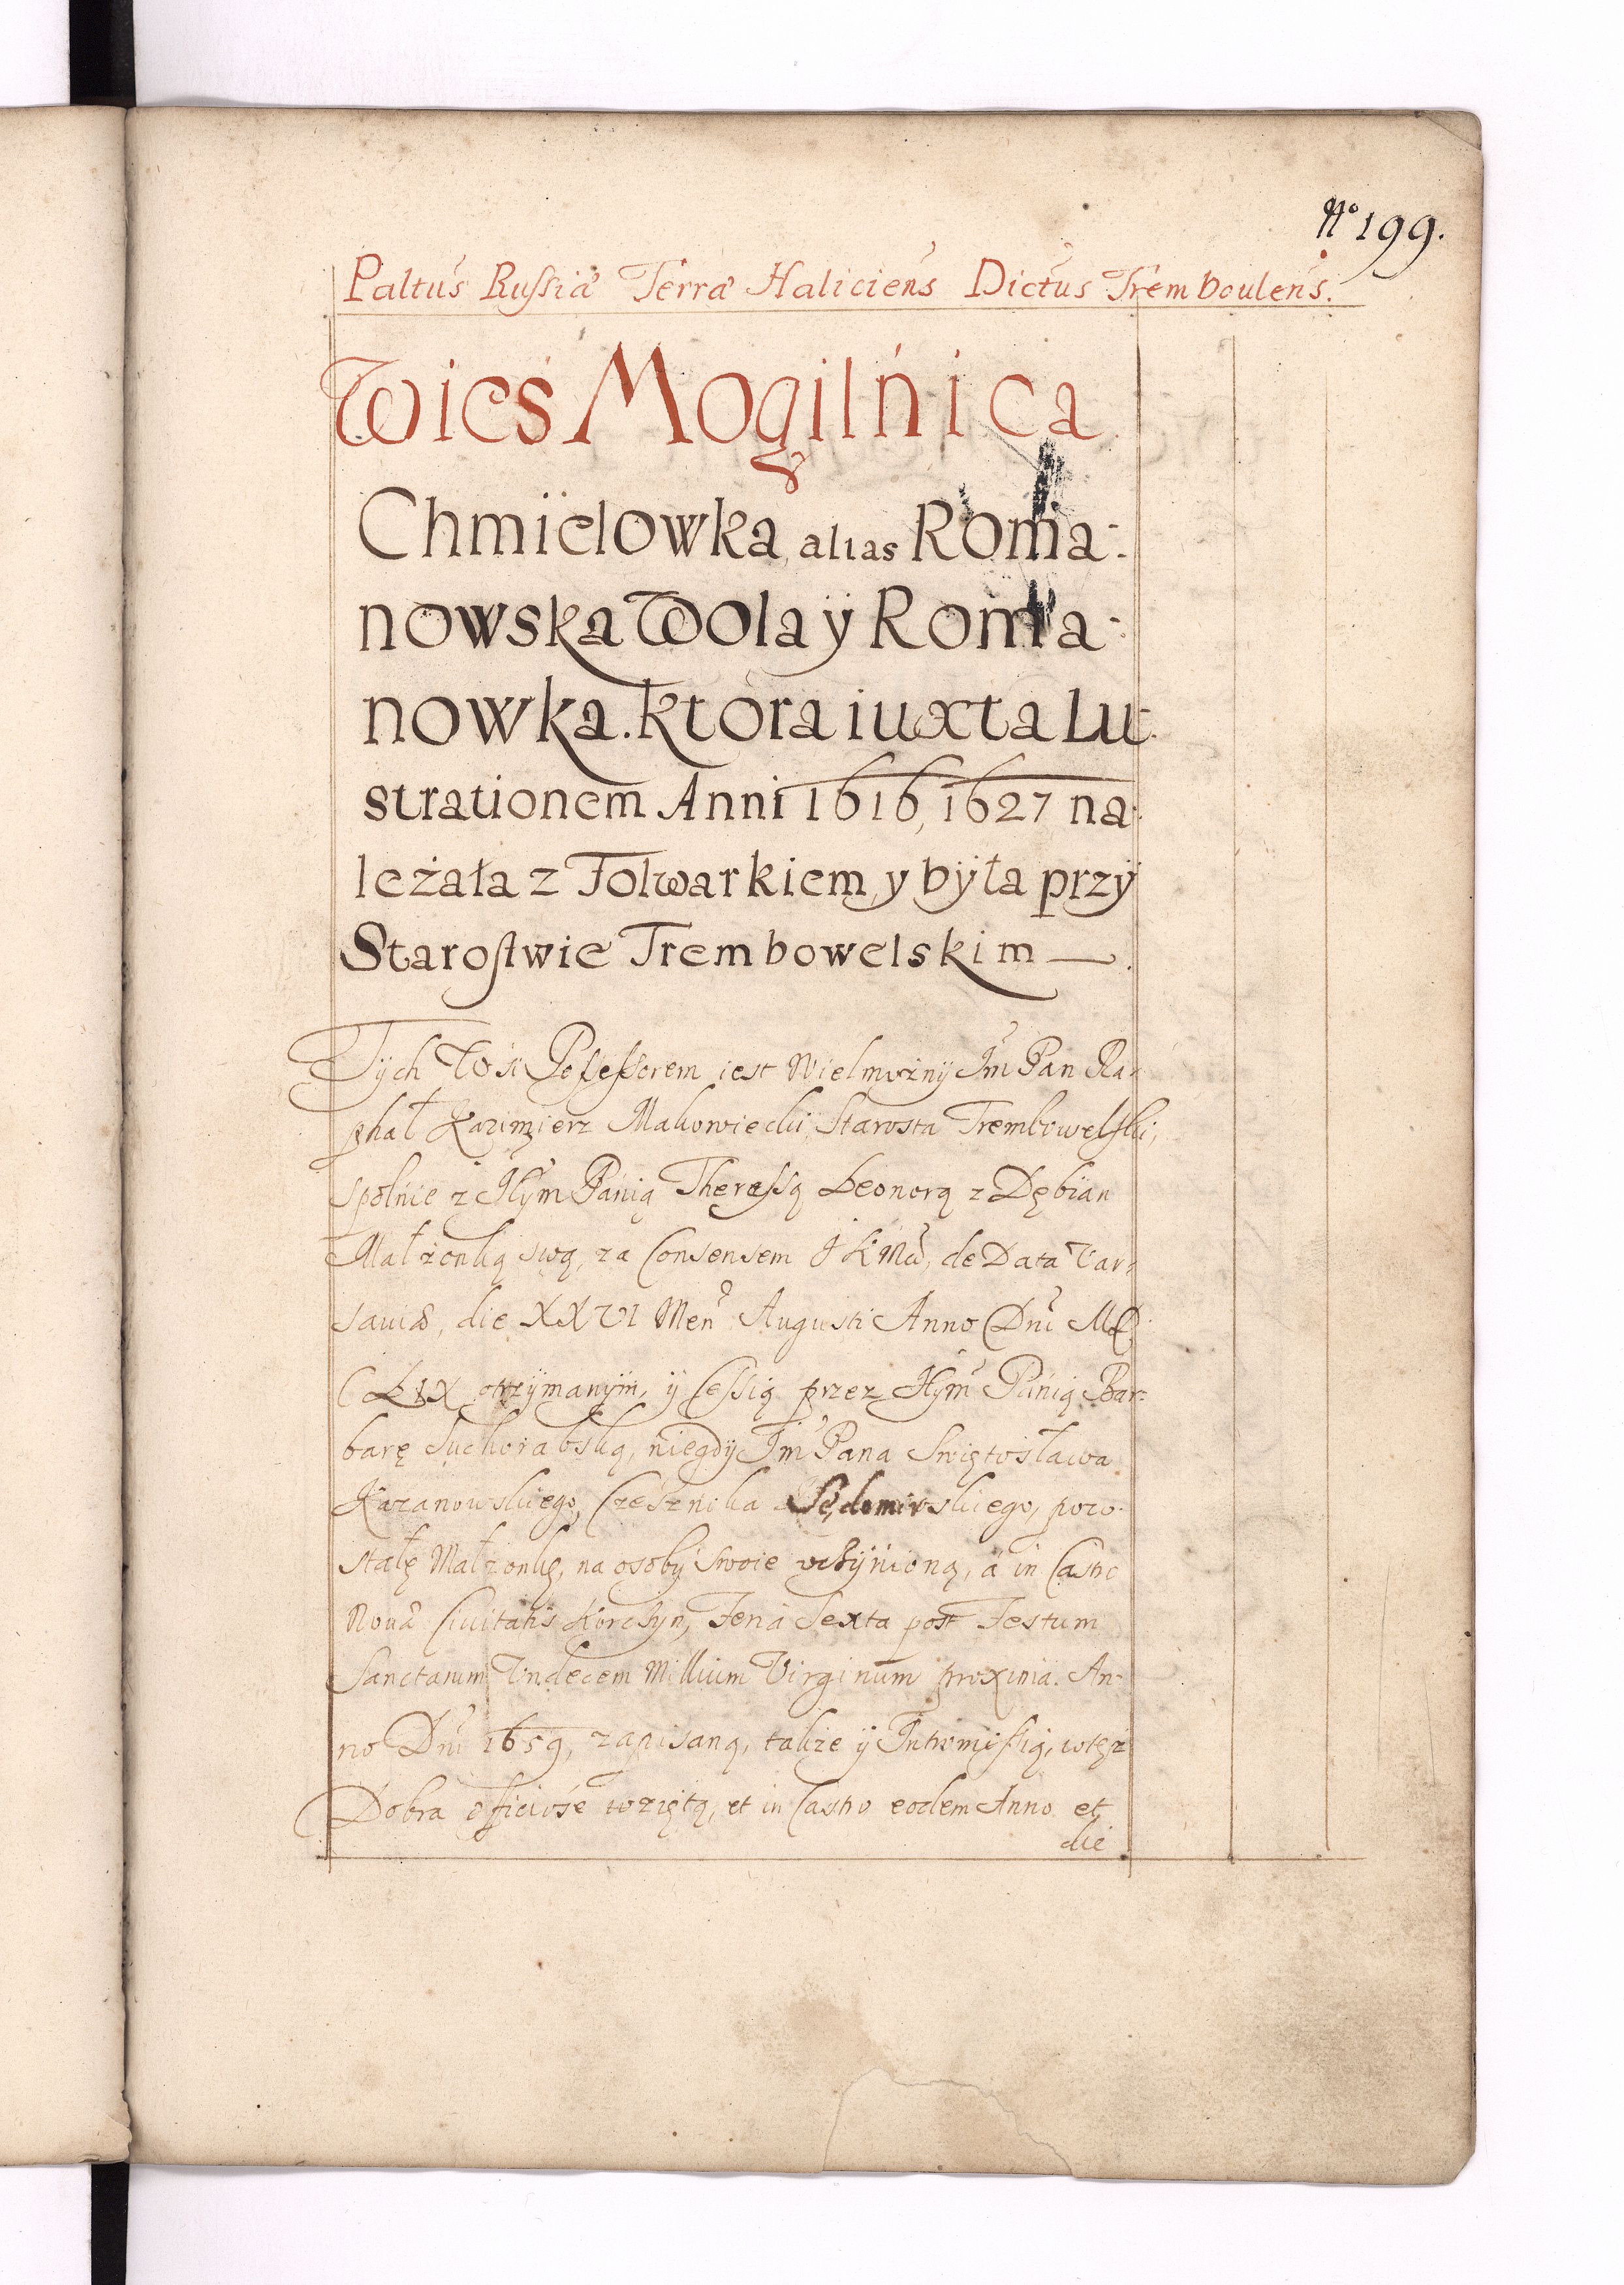 No 199.
Paltus Russiæ Terræ Haliciens Dictus Tremboulens.
Wieś Mogilńica
Chmielowka alias Roma-
nowska Wola y Roma-
nowka. ktora iuxta Lu-
strationem Anni 1616, 1627 na-
leżała z Folwarkiem, y była przy
Starostwie Trembowelskim —
Tych Wsi Possessorem iest Wielmożny Jm Pan Ra-
phał Kazimierz Makowiecki, Starosta Trembowelski,
spolnie z Jeym Panią Theressą Leonorą z Dębian
Małżonką swą, za Consensem J K Mci, de Data Var-
saviæ, die XXVI Men Augusti Anno Dni MD
CLIX otrzymanym, y Cessią przez Jeym Panią Bar-
barę Suchorabską, niegdy Jm Pana Swiętosława
Kazanowskiego, Czesznika Sędomirskiego, pozo-
stałę Małżonkę, na osoby swoie vczynioną, a in Castro
Novæ Civitatis Korczyn, Feria Sexta post Festum
Sanctarum Vndecem Millium Virginum proxima. An-
no Dni 1659, zapisaną, także y Intromissią, w tesz
Dobra officiose wziętą, et in Castro eodem Anno et
die